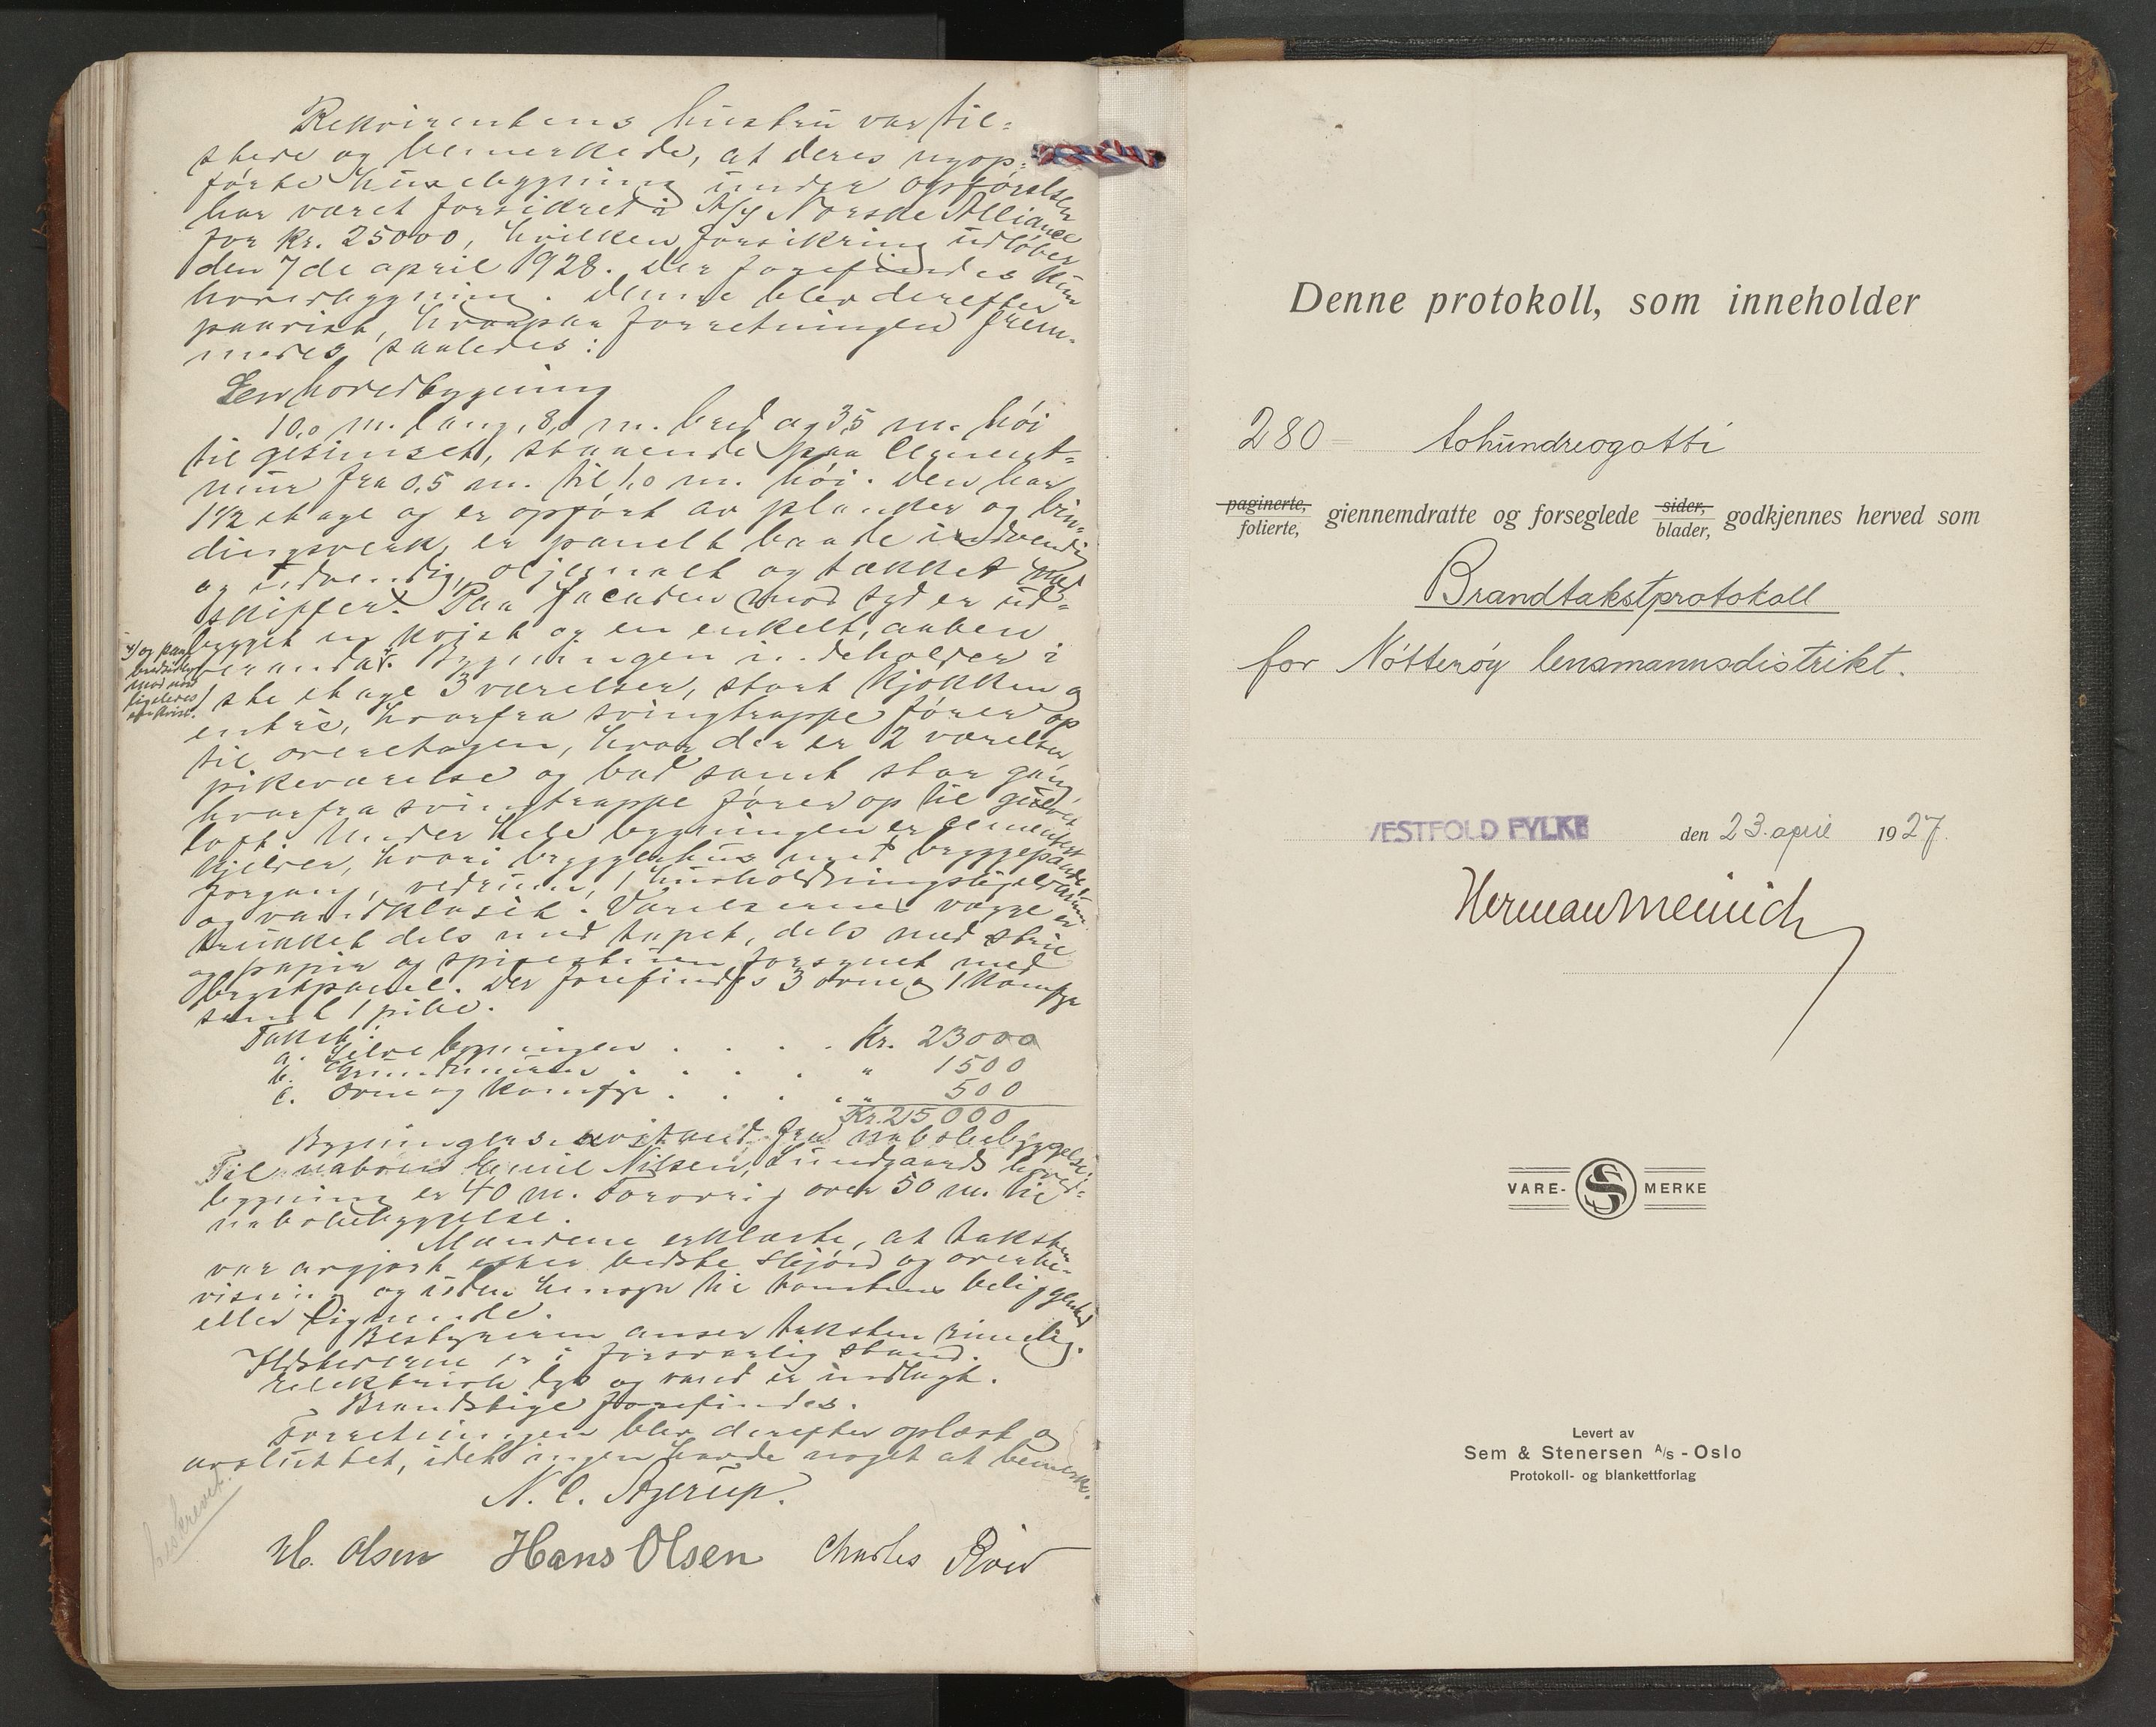 Rekvirentens hustru var til=
stede og bemerkede, at deres nyop=
førte husebygning under opførelsen
har været forsikret i A/S Norske Alliance
for kr. 25000, hvilken forsikring utløber
den 7de april 1928. Der forefindes kun
hovedbygning. Denne blev derefter
paavist, hvorpaa forretningen frem-
medes saaledes:
En hovedbygning
10,0 m. lang, 8,0 m. bred og 3,5 m. høi
til gesimset, staaende paa Cement=
mur fra 0,5 m. til 1,0 m. høi. Den har
1 1/2 etage og er opført av planker og bin-
dingsverk, er panelt baade indvendig
og utvendig, oljemalt og tækket med
skiffer. Paa facaden mod syd er ut=
bygget en kvist og en enkelt, aaben
veranda x). Bygningen indeholder i
x) og paa
mod nord
ligeledes
en kvist.
1ste etage 3 værelser, stort kjøkken og
entré, hvorfra svingtrappe fører op
til overetagen, hvor der er 2 værelser,
pikeværelse og bad samt stor gang,
hvorfra svingtrappe fører op til gulvet
loft. Under hele bygningen er cementert
kjelder, hvori bryggerhus med bryggepande,
forgang, vedrum, 1 husholdningskjelderrum
og vandklosett. Værelsernes vægge er
trukket dels med tapet, dels med strie
og papir og spisestuen forsynet med
brystpanel. Der forefindes 3 ovne og 1 komfyr
samt 1 pibe.
Takst:
a. Selve bygningen . . . . Kr. 23000
b. Grundmuren . . . . " 1500
c. Ovne og komfyr . . . . " 500
Kr. 25000
Bygningens avstand fra nabobebyggelse:
Til naboen Emil Nilsen, Lundgaards hoved=
bygning er 40 m. Forøvrig over 50 m. til
nabobebyggelse.
Mændene erklærte, at taksten
var avgjort efter bedste skjøn og overbe-
visning og uten hensyn til tomtens beliggenhet
eller lignende.
Bestyreren anser taksten rimelig.
Ildstederne er i forsvarlig stand.
Elektrisk lys og vand er indlagt.
Brandstige forefindes.
Forretningen blev derefter oplæst og
avsluttet, idet ingen havde noget at bemerke.
N. C. Agerup.
H. Olsen Hans Olsen Charles
beskrevet.
Denne protokoll, som inneholder
280 = tohundreogotti
paginerte, sider,
folierte, giennemdratte og forseglede blader, godkjennes herved som
Brandtakstprotokoll
for Nøtterøy lensmannsdistrikt.
VESTFOLD FYLKE den 23. april 1927.
Herman Meinich
VARE- S MERKE
Levert av
Sem & Stenersen A/s - Oslo
Protokoll- og blankettforlag